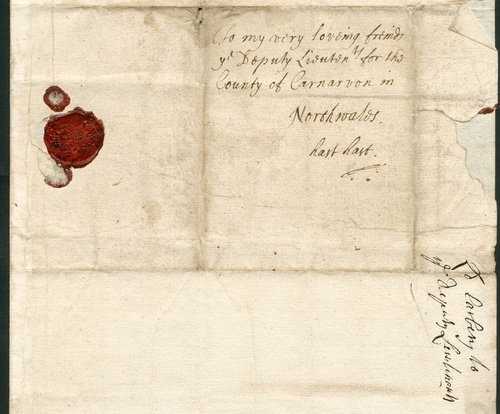 To my very loveing freinds
yᵉ Deputy Lieutenᵗˢ for the
County of Carnarvon in
Northwales.
hast hast.
Ld Carbery to
yᵉ Deputy Lewtenants